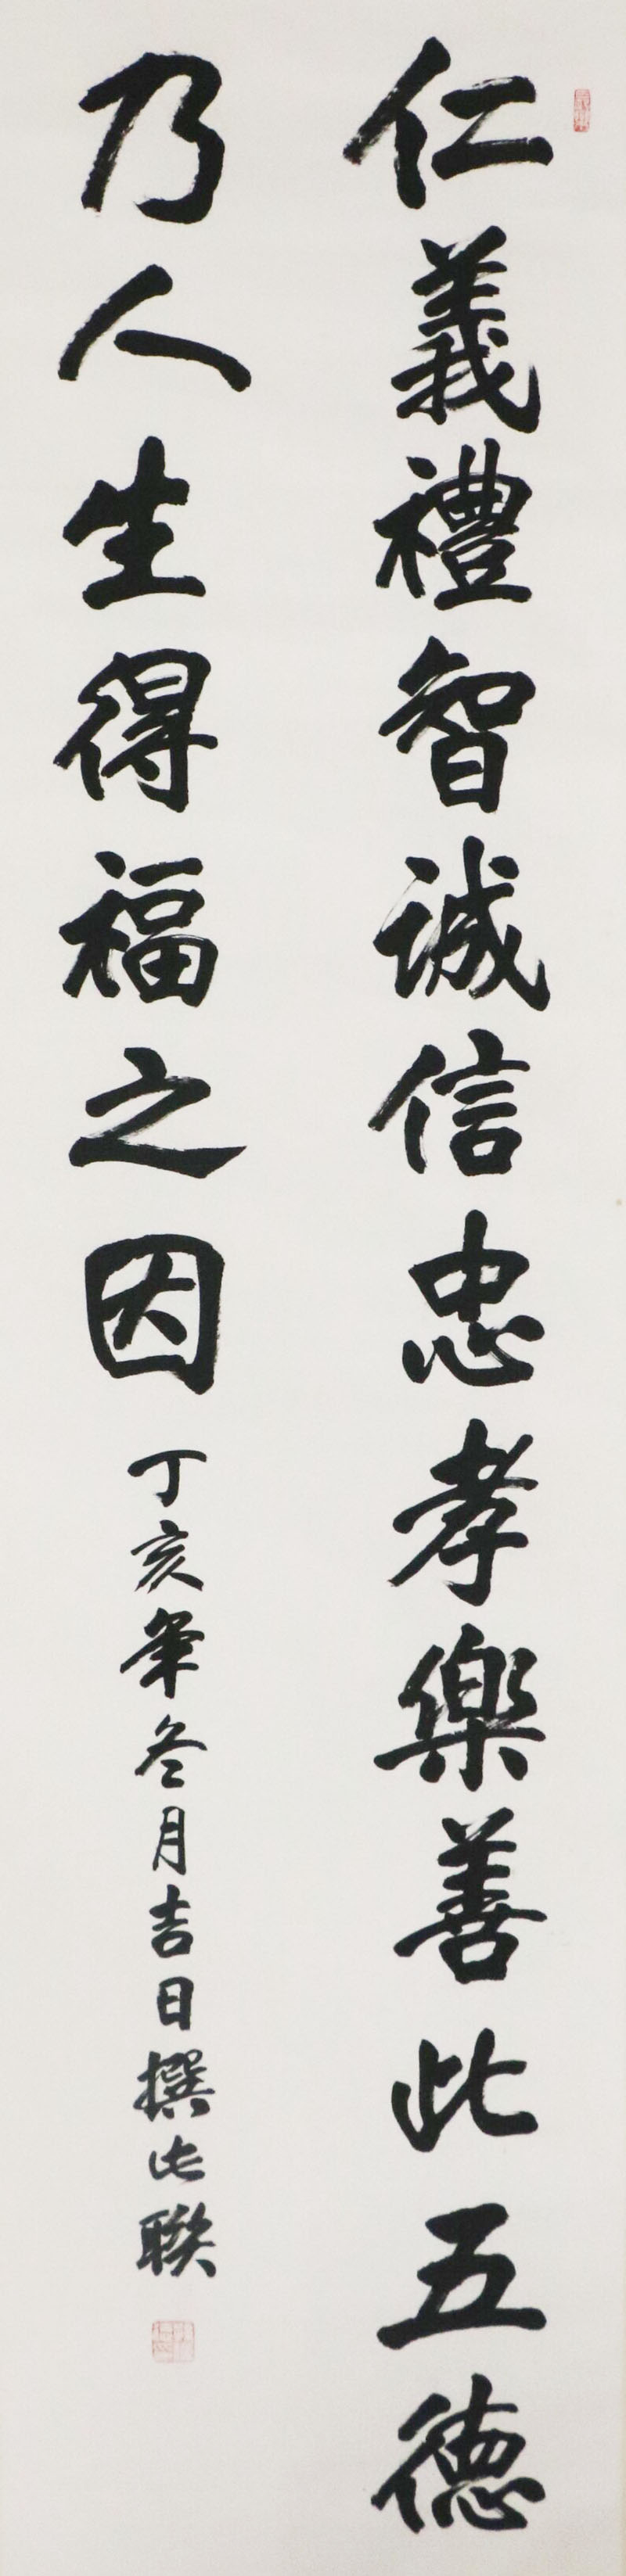 仁義禮智誠信忠孝樂善此五德
乃人生得福之因
丁亥年冬月吉日撰此聯